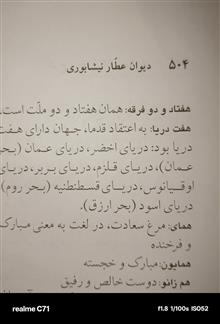 ۵۰۴ دیوان عطّار نیشابوری
هفتاد و دو فرقه: همان هفتاد و دو ملّت است.
هفت دریا: به اعتقاد قدما، جهان دارای هفت
دریا بود: دریای اخضر، دریای عمان (بحر
عمان)، دریای قلزم، دریای بربر، دریای
اوقیانوس، دریای قسطنطنیه (بحر روم)
دریای اسود (بحر ازرق).
همای: مرغ سعادت، در لغت به معنی مبارک
و فرخنده
همایون: مبارک و خجسته
هم زانو: دوست خالص و رفیق
realme C71 f1.8 1/100s ISO52